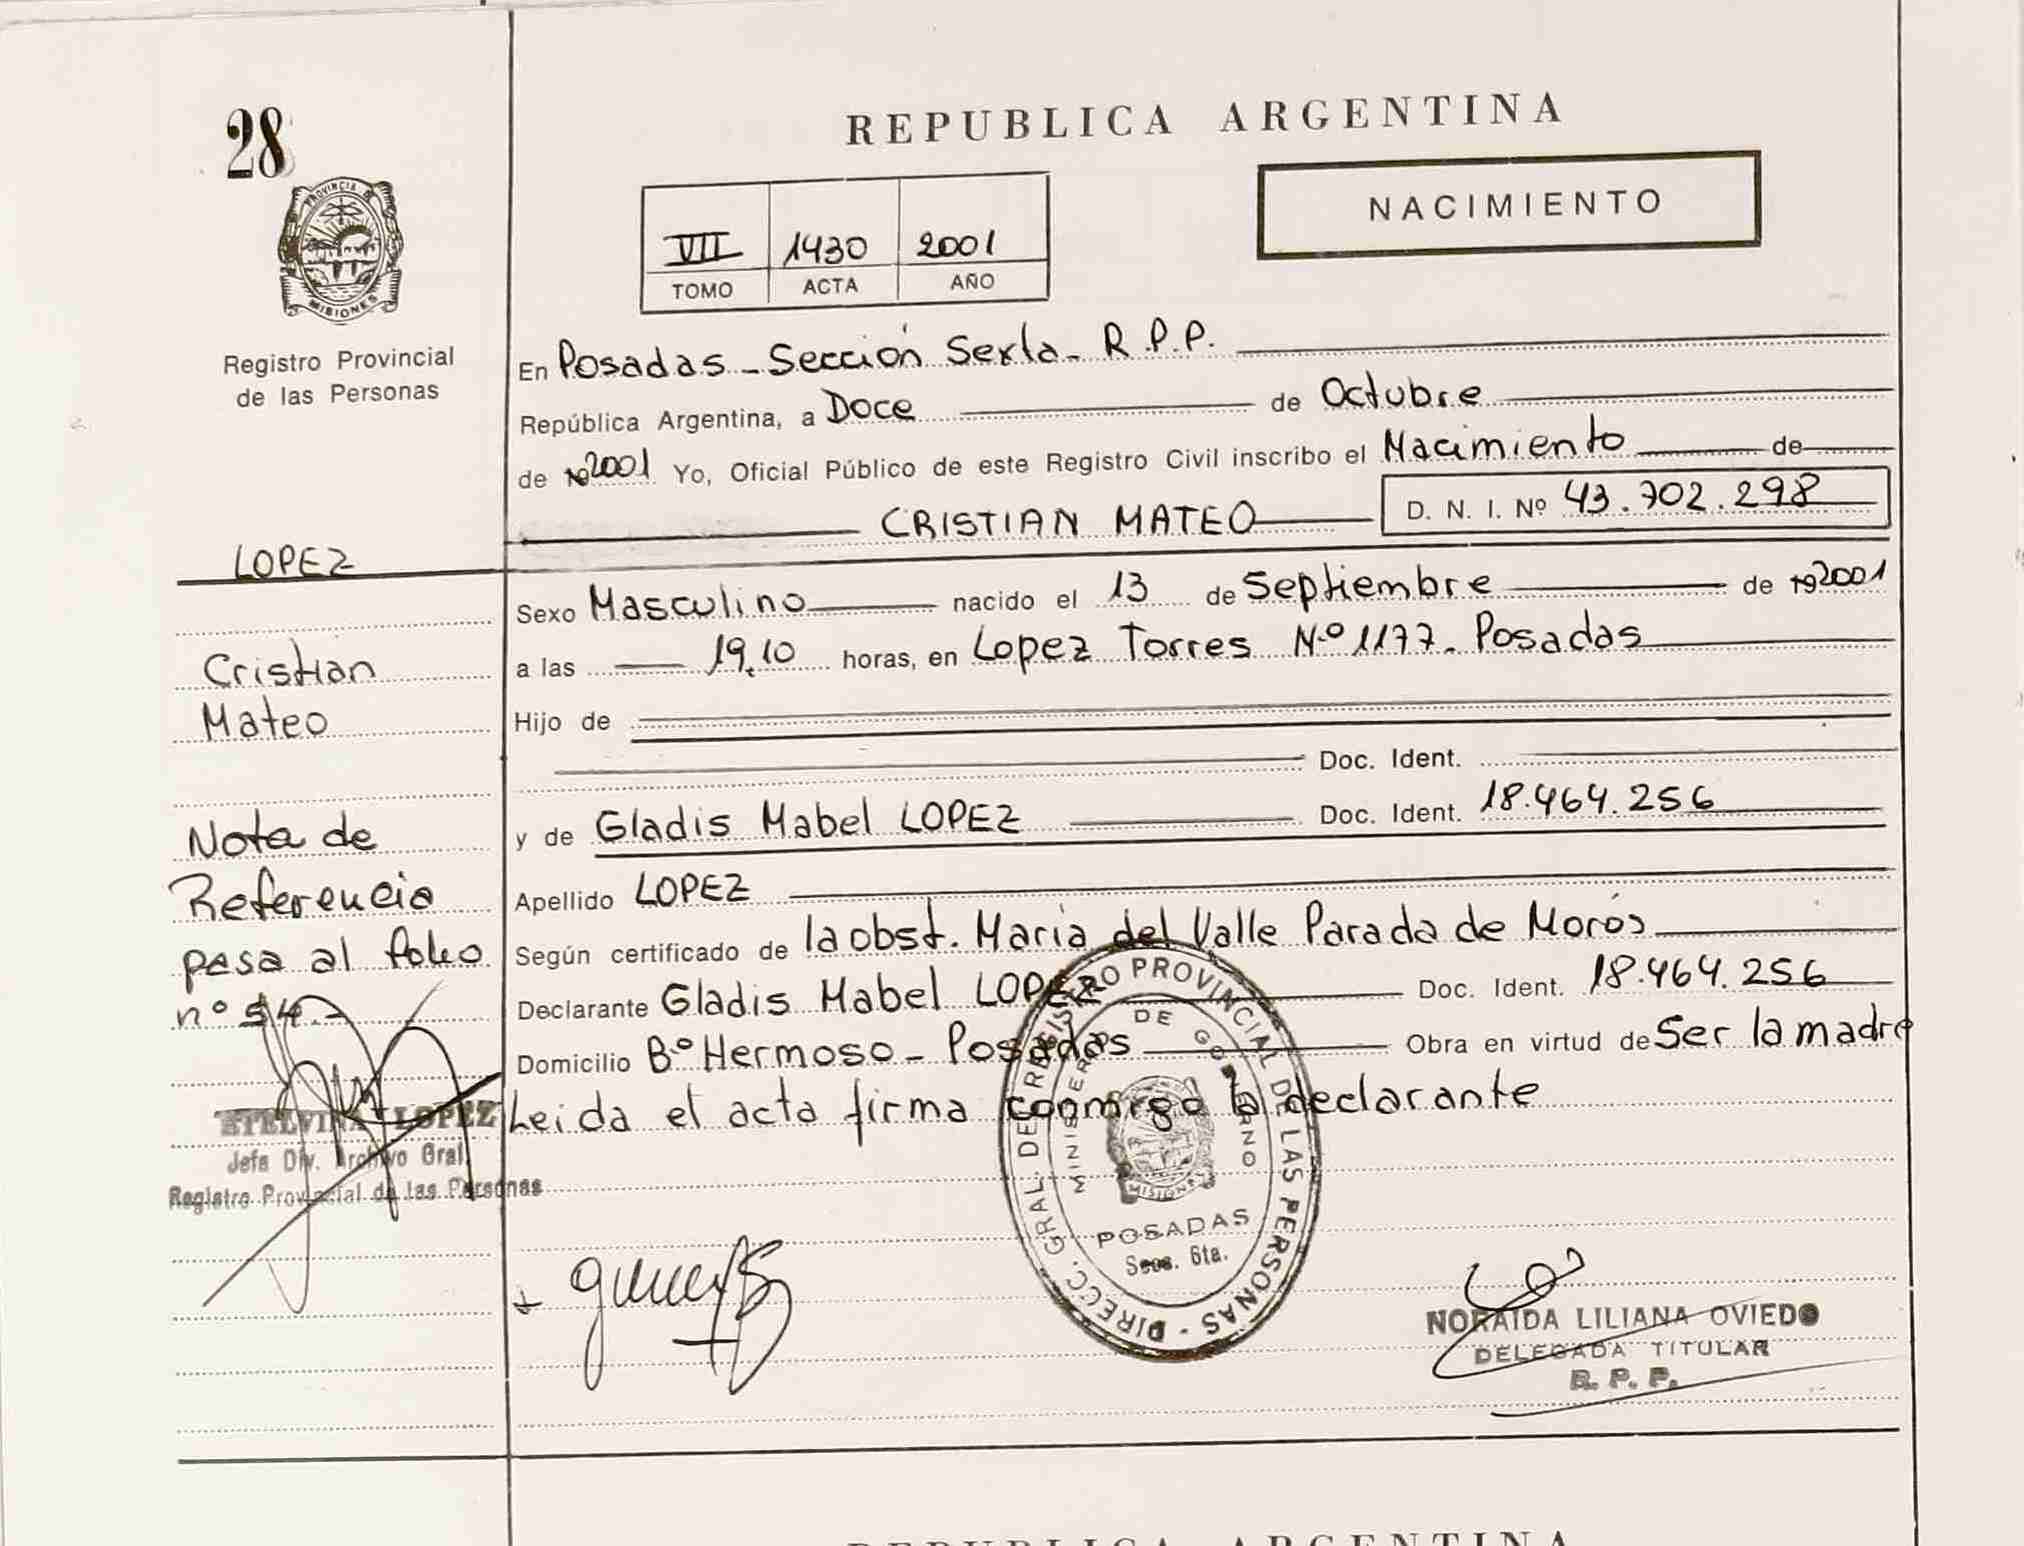 28
REPUBLICA ARGENTINA
NACIMIENTO
VII 1430 2001
TOMO ACTA AÑO
PROVINCIA DE MISIONES
Registro Provincial
de las Personas
En Posadas - Sección Sexta - R.P.P.
República Argentina, a Doce de Octubre
de 19 2001 Yo, Oficial Público de este Registro Civil inscribo el Nacimiento de
CRISTIAN MATEO D. N. I. Nº 43.702.298
LOPEZ
Cristian
Mateo
Sexo Masculino nacido el 13 de Septiembre de 19 2001
a las 19,10 horas, en Lopez Torres Nº 1177. Posadas
Hijo de
Doc. Ident.
y de Gladis Mabel LOPEZ Doc. Ident. 18.464.256
Apellido LOPEZ
Según certificado de la obst. Maria del Valle Parada de Morós
Declarante Gladis Mabel LOPEZ Doc. Ident. 18.464.256
Domicilio Bº Hermoso - Posadas Obra en virtud de Ser la madre
Leida el acta firma conmigo la declarante
Nota de
Referencia
pasa al folio
nº 54.-
ETELVINA LOPEZ
Jefa Div. Archivo Gral.
Registro Provincial de las Personas
DIRECC. GRAL. DEL REGISTRO PROVINCIAL DE LAS PERSONAS
MINISTERIO DE GOBIERNO
MISIONES
POSADAS
Secc. 6ta.
NORAIDA LILIANA OVIEDO
DELEGADA TITULAR
R. P. P.
REPUBLICA ARGENTINA